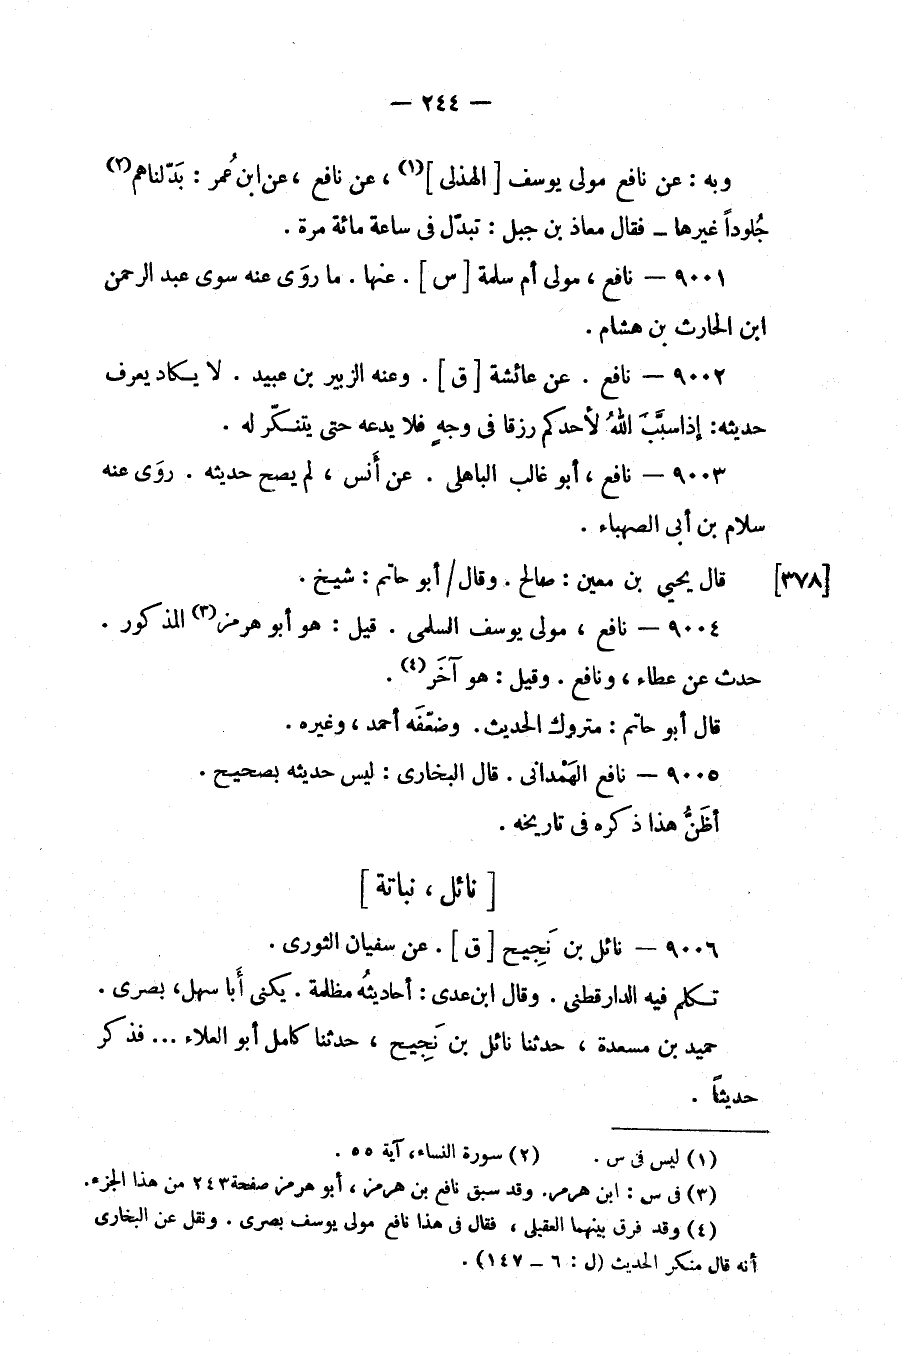 — ٢٤٤ —
وبه : عن نافع مولى يوسف [ الهذلى ](١) ، عن نافع ، عن ابن عُمر : بَدّلناهم(٢)
جُلوداً غيرها – فقال معاذ بن جبل : تبدّل فى ساعة مائة مرة .
٩٠٠١ — نافع ، مولى أم سلمة [ س ] . عنها . ما روَى عنه سوى عبد الرحمن
ابن الحارث بن هشام .
٩٠٠٢ — نافع . عن عائشة [ ق ] . وعنه الزبير بن عبيد . لا يكاد يعرف
حديثه : إذا سبَّبَ اللهُ لأحدكم رزقا فى وجهٍ فلا يدعه حتى يتنكّر له .
٩٠٠٣ — نافع ، أبو غالب الباهلى . عن أَنس ، لم يصح حديثه . روَى عنه
سلام بن أبى الصهباء .
قال يحيى بن معين : صالح . وقال/ أبو حاتم : شيخ . [٣٧٨]
٩٠٠٤ — نافع ، مولى يوسف السلمى . قيل : هو أبو هرمز(٣) المذكور .
حدث عن عطاء ، ونافع . وقيل : هو آخَر(٤) .
قال أبو حاتم : متروك الحديث . وضعّفَه أحمد ، وغيره .
٩٠٠٥ — نافع الهَمْدانى . قال البخارى : ليس حديثه بصحيح .
أظَنُّ هذا ذكره فى تاريخه .
[ نائل ، نباتة ]
٩٠٠٦ — نائل بن نَجِيح [ ق ] . عن سفيان الثورى .
تكلم فيه الدارقطنى . وقال ابن عدى : أحاديثُه مظلمة . يكنى أَبا سهل ، بصرى .
حميد بن مسعدة ، حدثنا نائل بن نَجِيح ، حدثنا كامل أبو العلاء ... فذكر
حديثاً .
(١) ليس فى س . (٢) سورة النساء ، آية ٥٥ .
(٣) فى س : ابن هرمز . وقد سبق نافع بن هرمز ، أبو هرمز صفحة ٢٤٣ من هذا الجزء .
(٤) وقد فرق بينهما العقيلى ، فقال فى هذا نافع مولى يوسف بصرى . ونقل عن البخارى
أنه قال منكر الحديث (ل : ٦ – ١٤٧) .